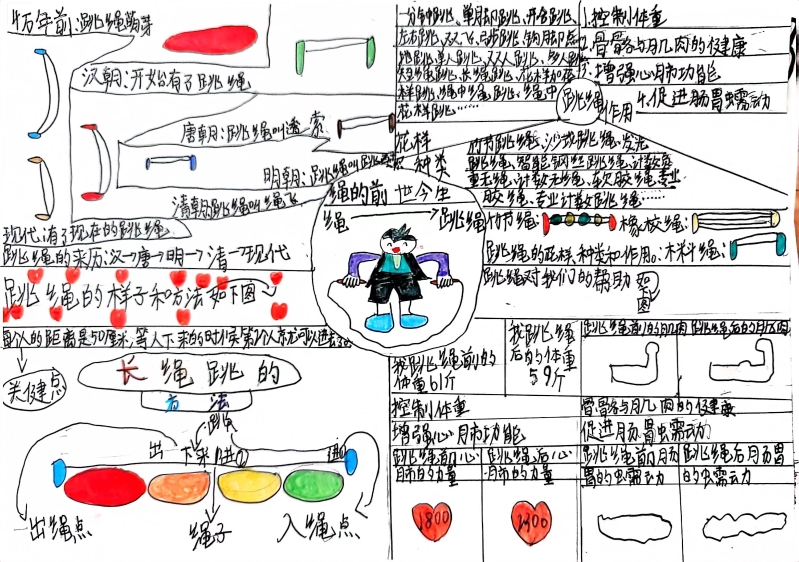 4万年前:跳绳萌芽
汉朝:开始有了跳绳
唐朝:跳绳叫透索
明朝:跳绳叫跳
清朝跳绳叫绳飞
现代:有了现在的跳绳
跳绳的来历:汉→唐→明→清→现代
跳绳的样子和方法如下图
每人的距离是50厘米,等人下来的时候第2个人
关健点
长绳跳的
方法
跳
出
进①
进②
出绳点
绳子
入绳点
绳的前世今生
绳
跳绳
一分钟跳、单脚跳、开合跳、
左右跳、双飞、弓步跳、
地跳单人跳、双人跳、多人跳
短绳跳、长绳跳、花样
样跳、绳中绳跳、绳中
花样跳……
1.控制体重
2.骨骼与肌肉的健康
3.增强心肺功能
4.促进肠胃蠕动
跳绳作用
花样
种类
竹节跳绳、沙球跳绳、发光
跳绳、智能钢丝跳绳、计数
重无绳、计数无绳、软胶绳、专业
胶绳、专业计数跳绳……
竹节绳:
橡校绳:
跳绳的花样、种类和作用。
木料绳:
跳绳对我们的帮助
如图
我跳绳前的体重61斤
我跳绳后的体重59斤
跳绳前的肌肉
跳绳后的肌肉
控制体重
骨骼与肌肉的健康
增强心肺功能
促进肠胃蠕动
跳绳前心肺的力量
跳绳后心肺的力量
跳绳前肠胃的蠕动
跳绳后肠胃的蠕动
1800